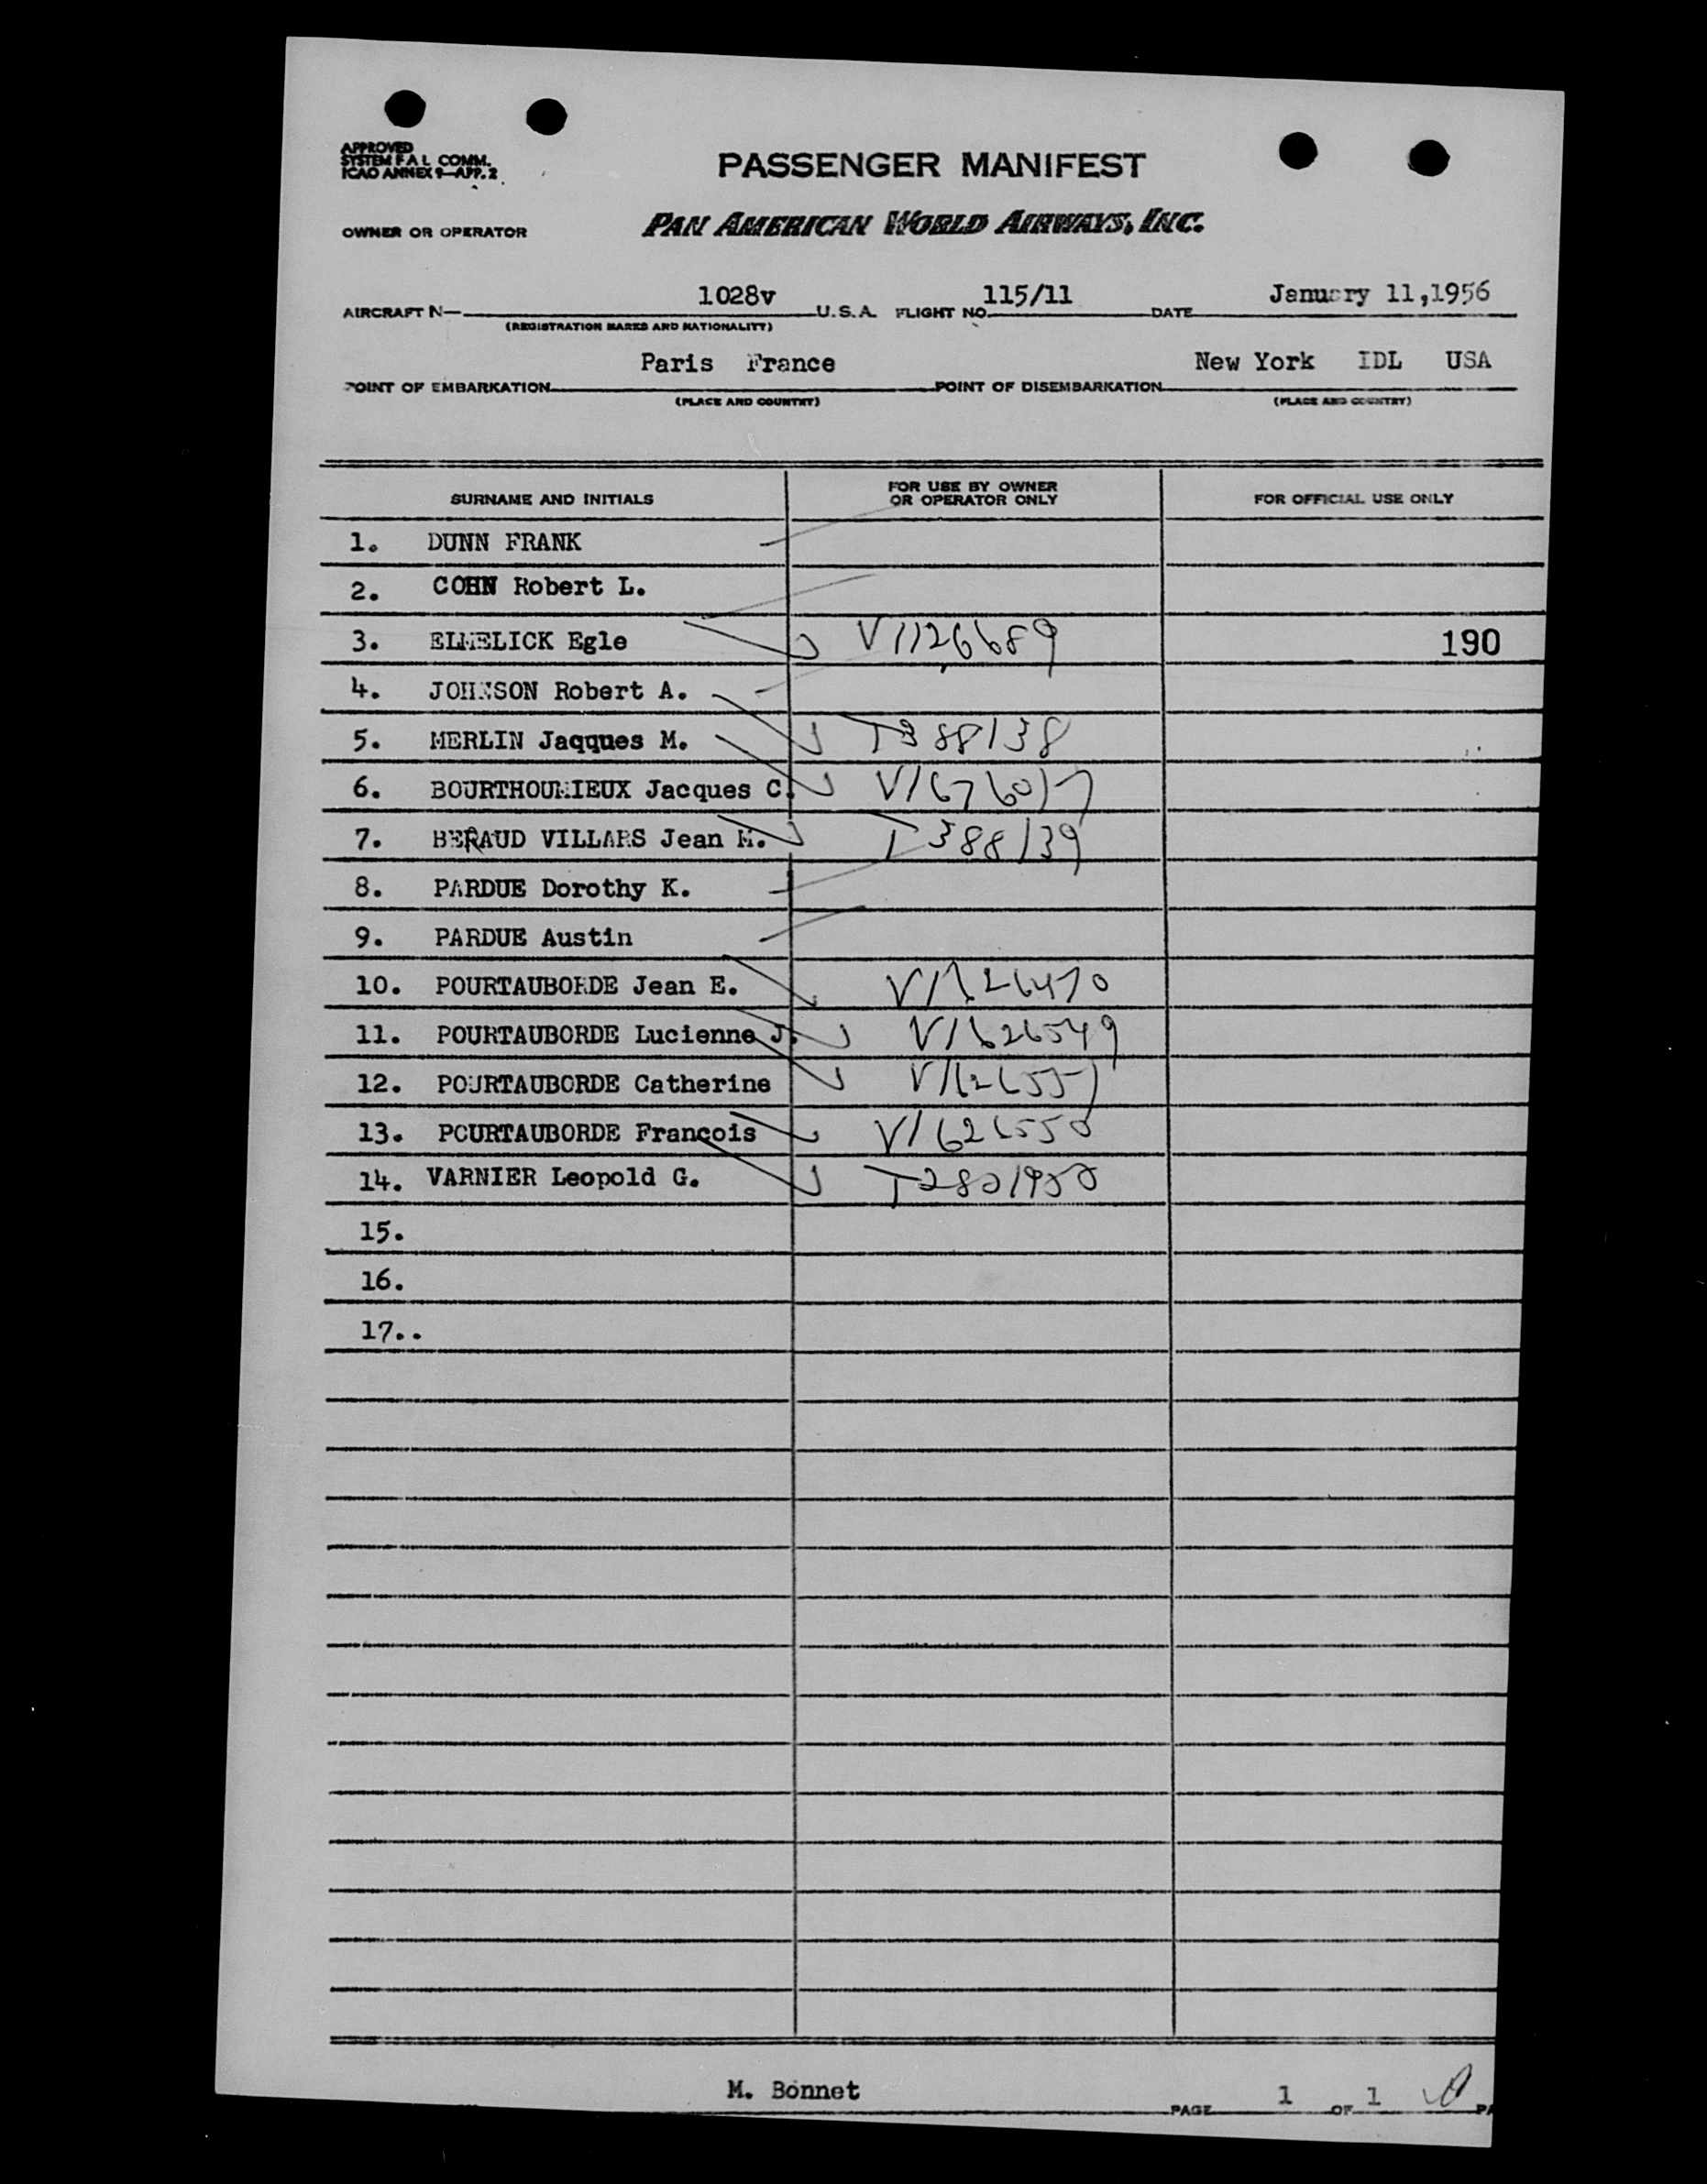 APPROVED
SYSTEM F A L COMM.
ICAO ANNEX 9—APP. 2
PASSENGER MANIFEST
OWNER OR OPERATOR PAN AMERICAN WORLD AIRWAYS, INC.
AIRCRAFT N— 1028v U.S.A. FLIGHT NO. 115/11 DATE January 11,1956
(REGISTRATION MARKS AND NATIONALITY)
POINT OF EMBARKATION Paris France POINT OF DISEMBARKATION New York IDL USA
(PLACE AND COUNTRY) (PLACE AND COUNTRY)
SURNAME AND INITIALS FOR USE BY OWNER OR OPERATOR ONLY FOR OFFICIAL USE ONLY
1. DUNN FRANK
2. COHN Robert L.
3. ELMELICK Egle V1126689 190
4. JOHNSON Robert A.
5. MERLIN Jaqques M. T388138
6. BOURTHOUMIEUX Jacques C. V1676017
7. BERAUD VILLARS Jean M. T388139
8. PARDUE Dorothy K.
9. PARDUE Austin
10. POURTAUBORDE Jean E.
11. POURTAUBORDE Lucienne J. V1626549
12. POURTAUBORDE Catherine V1626551
13. POURTAUBORDE Francois V1626550
14. VARNIER Leopold G.
15.
16.
17..
M. Bonnet
PAGE 1 OF 1